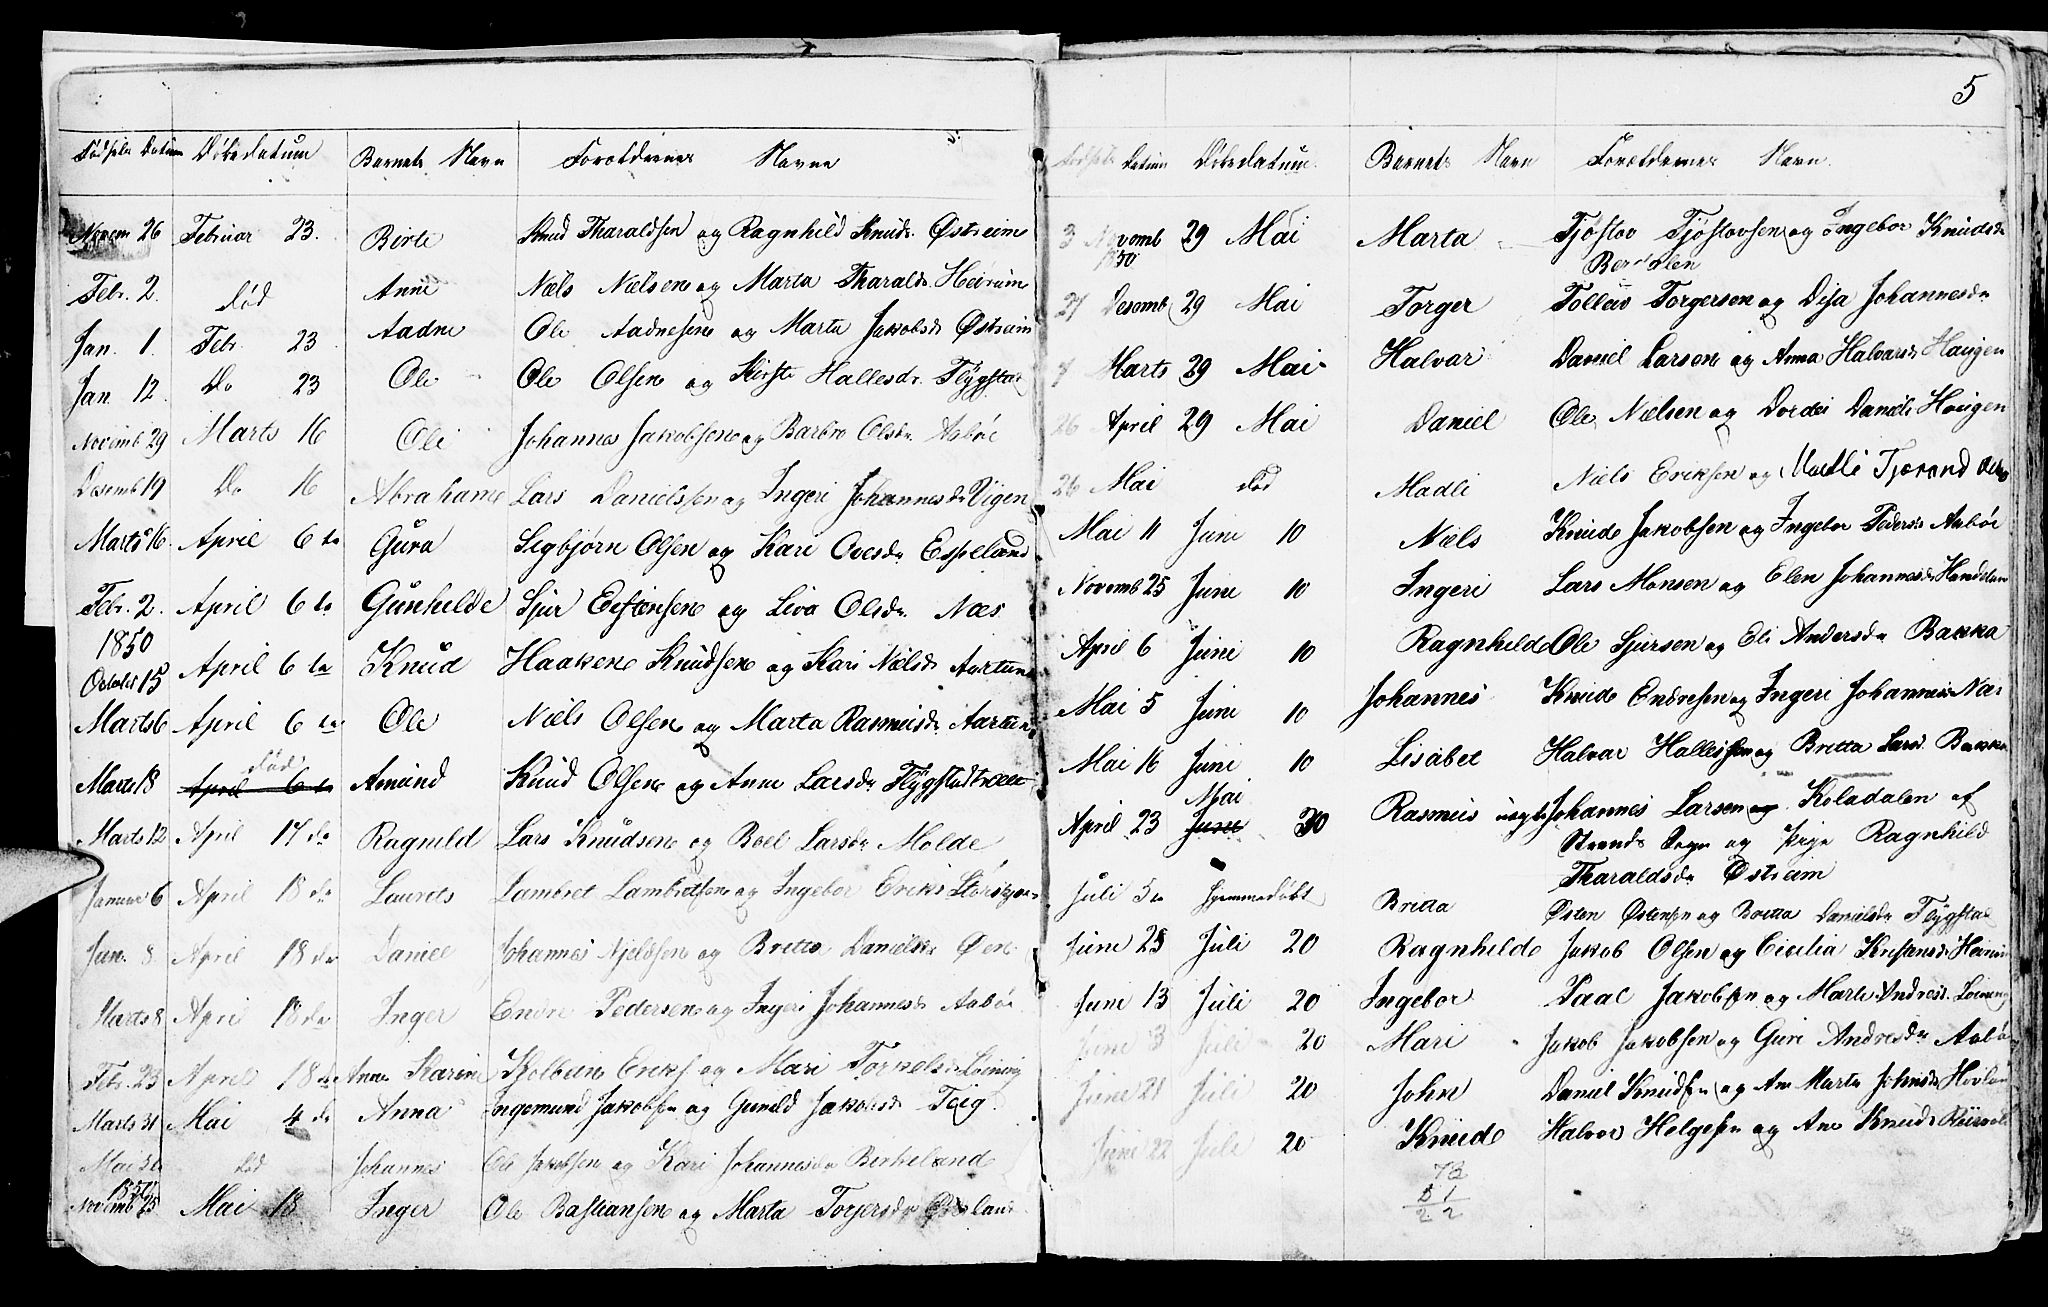 Fødsels Datum Døbedatum Barnets Navn Forældrenes Navne
Novem 26 Februar 23. Birte Knud Tharaldsen og Ragnhild Knuds. Østreim
Febr. 2. død Anne Niels Nielsen og Marta Tharalds. Heirum
Jan. 1. Febr. 23 Aadne Ole Aadnesen og Marta Jakobsd. Østreim
Jan. 12. Do 23 Ole Ole Olsen og Kirste Hallesdr. Flygstad
Novemb 29 Marts 16 Oli Johannes Jakobsen og Barbro Olsdr Aabøe
Desemb 19 Do 16 Abrahame Lars Danielssen og Ingeri Johannesdr Vigen
Marts 16. April 6 te Gura Sigbjørn Olsen og Kari Ovesdr Espeland
Febr. 2. April 6 te Gunhilde Sjur Eestensen og Liva Olsdr. Næs
1850
October 15 April 6 te Knud Haaken Knudsen og Kari Nielsdr Aartun
Marts 6 April 6 te Ole Niels Olsen og Marta Rasmusdr. Aartun
død
Marts 18 Amund Knud Olsen og Anne Larsdr Flygstad
Marts 12 April 17 de Ragnild Lars Knudsen og Boel Larsdr Molde
Januar 6 April 18 de Laurits Lambret Lambretsen og Ingebor Eriks
Jan. 8. April 18 de Daniel Johannes Njelsen og Britta Danielsdr Øen
Marts 8 April 18 de Inger Endre Pedersen og Ingeri Johannesdr Aabøe
Febr. 23 April 18 de Anne Karine Kolbein Eriks. og Mari Torkelsdr
Marts 31 Mai 4 de Anna Ingemund Jakobsen og Gunild Jakobsdr Teig.
Mai død Johannes Ole Jakobsen og Kari Johannesdr Birkeland
Novemb 25 Mai 18 Inger Ole Bastiansen og Marta Torjersdr
5
Fødsels Datum Døbedatum. Barnets Navn Forældrenes Navn.
3 Novemb 29 Mai Marta Tjøstov Tjøstovsen og Ingebor Knudsdr
1850
27 Desemb 29 Mai Torger Tolleiv Torgersen og Disa Johannesdr
7 Marts 29 Mai Halvar Daniel Larsen og Anna Halvarsd. Haugen
26 April 29 Mai Daniel Ole Nielsen og Dordei Daniels Haugen
26 Mai død Madli Niels Eriksen og Madli Tjerand
Mai 11 Juni 10 Niels Knud Jakobsen og Ingebor Pedersdr Aabøe
Novemb 25 Juni 10 Ingeri Lars Monsen og Elen Johannesdr
April 6 Juni 10 Ragnhilde Ole Sjursen og Eli Andersdr Bakka
Mai 5 Juni 10 Johannes Knud Endresen og Ingeri Johannesdr Næs
Mai 16 Juni 10 Lisabet Halvar Hallessen og Britta Larsd. Bakka
Mai
April 23 Juni 30 Rasmus uegte Johannes Larsen Koladalen af
Strands Sogn og pige Ragnhild
Tharaldsdr Østreim
Juli 5 te hjemmedøbt Britta Østen Østensen og Britta Danielsdr Flygstad
Juni 25 Juli 20 Ragnhilde Jakob Olsen og Cicilia Kristensdr
Juni 13 Juli 20 Ingebor Isaac Jakobsen og Marte Andresdr.
Juni 3 Juli 20 Mari Jakob Jakobsen og Guri Andresdr Aabøe
Juni 21 Juli 20 John Daniel Knudsen og Ane Marta Johnsdr Hovland
Juni 22 Juli 20 Knud Halvor Helgesen og Ane Knuds
73
51
22